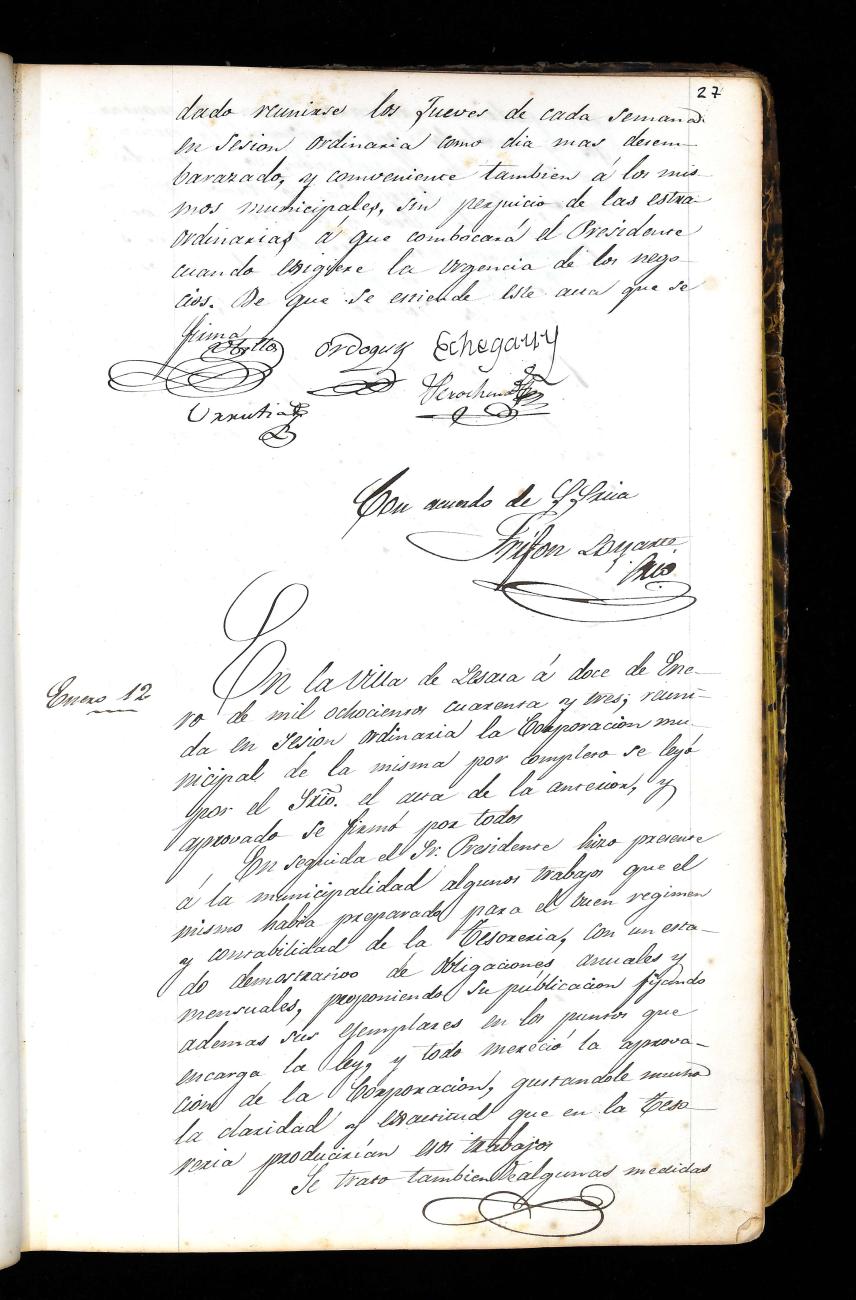 27
dado reunirse los Jueves de cada semana
en sesion ordinaria como dia mas desem-
barazado, y comveniente tambien á los mis-
mos municipales, sin perjuicio de las estra-
ordinarias á que combocará el Presidente
cuando exigiere la urgencia de los nego-
cios. De que se estiende este acta que se
firma
Ordoqui Echegaray
Urrutia
Con acuerdo de S. Sria
Trifon
Srio
Enero 12
En la villa de Lesaca á doce de Ene-
ro de mil ochocientos cuarenta y tres; reuni-
da en sesion ordinaria la Corporacion mu-
nicipal de la misma por completo se leyó
por el Srio. el acta de la anterior, y
aprovado se firmó por todos
En seguida el Sr. Presidente hizo presente
á la municipalidad algunos trabajos que el
mismo había preparado para el buen regimen
y contabilidad de la Tesoreria, con un esta-
do demostrativo de obligaciones anuales y
mensuales, proponiendo su publicacion fijando
ademas sus ejemplares en los puntos que
encarga la ley, y todo mereció la aprova-
cion de la Corporacion, gustandole mucho
la claridad y exactitud que en la Teso-
reria producirían esos trabajos
Se trato tambien de algunas medidas